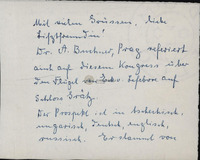 Mit vielen Grüssen, liebe
Dr. A. Buchner, Prag referiert
auch auf diesem Kongress über
Den Flügel von
Schloss Grätz
Der Prospekt ist in tschechisch,
ungarisch, deutsch, englisch,
russisch. Er stammt von